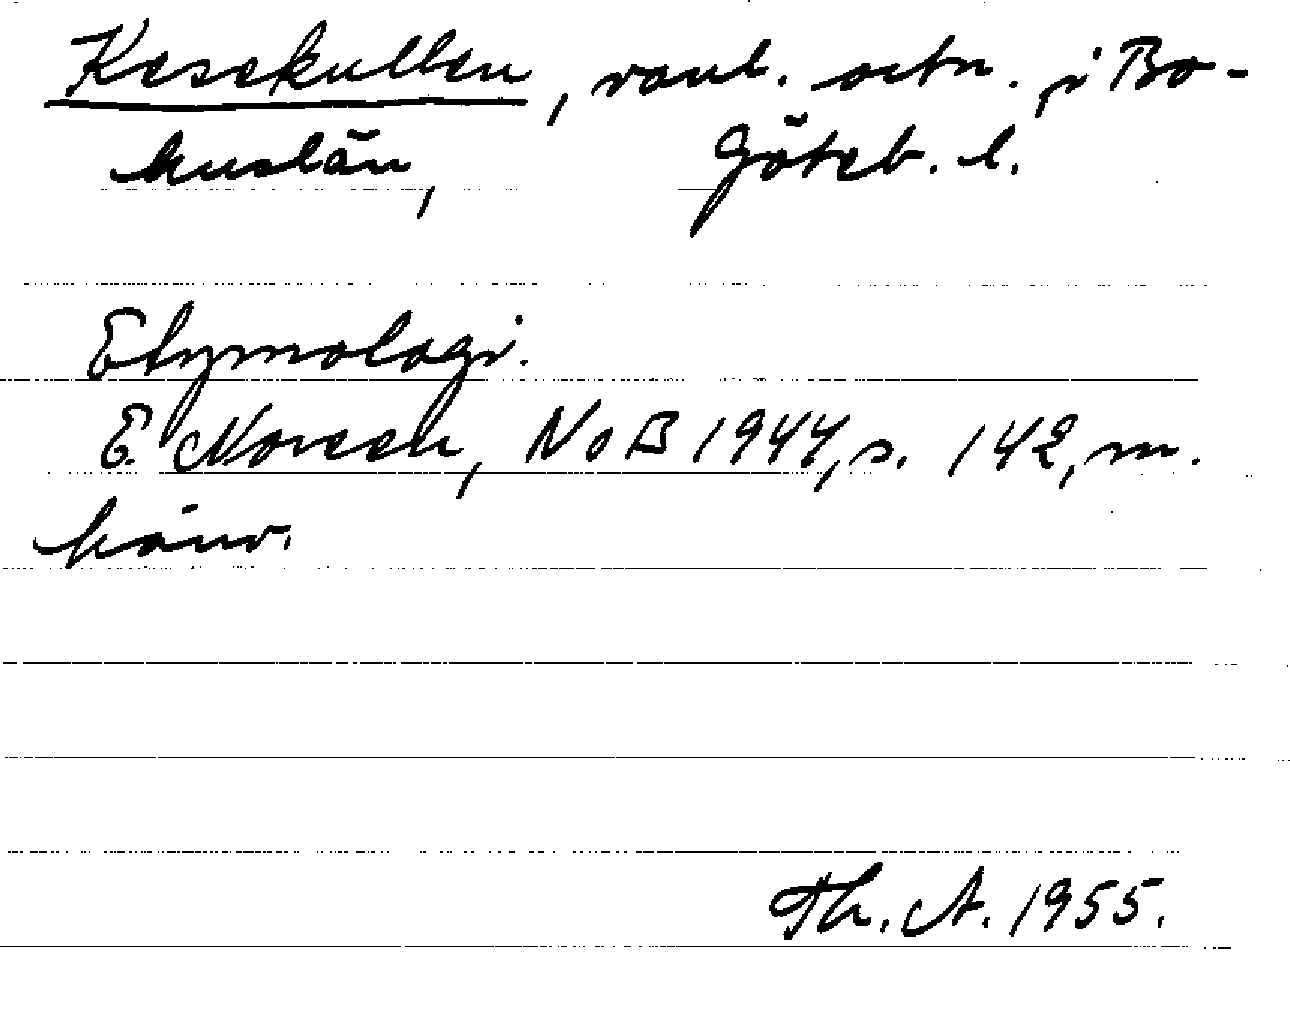 Kesekullen, vanl. ortn. i Bo-
huslän, Göteb. l.
Etymologi.
E. Noreen, NoB 1944, s. 142, m.
hänv.
Th. A. 1955.